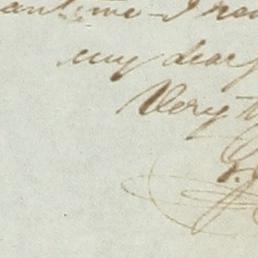 antime I rem
my dear
Very t